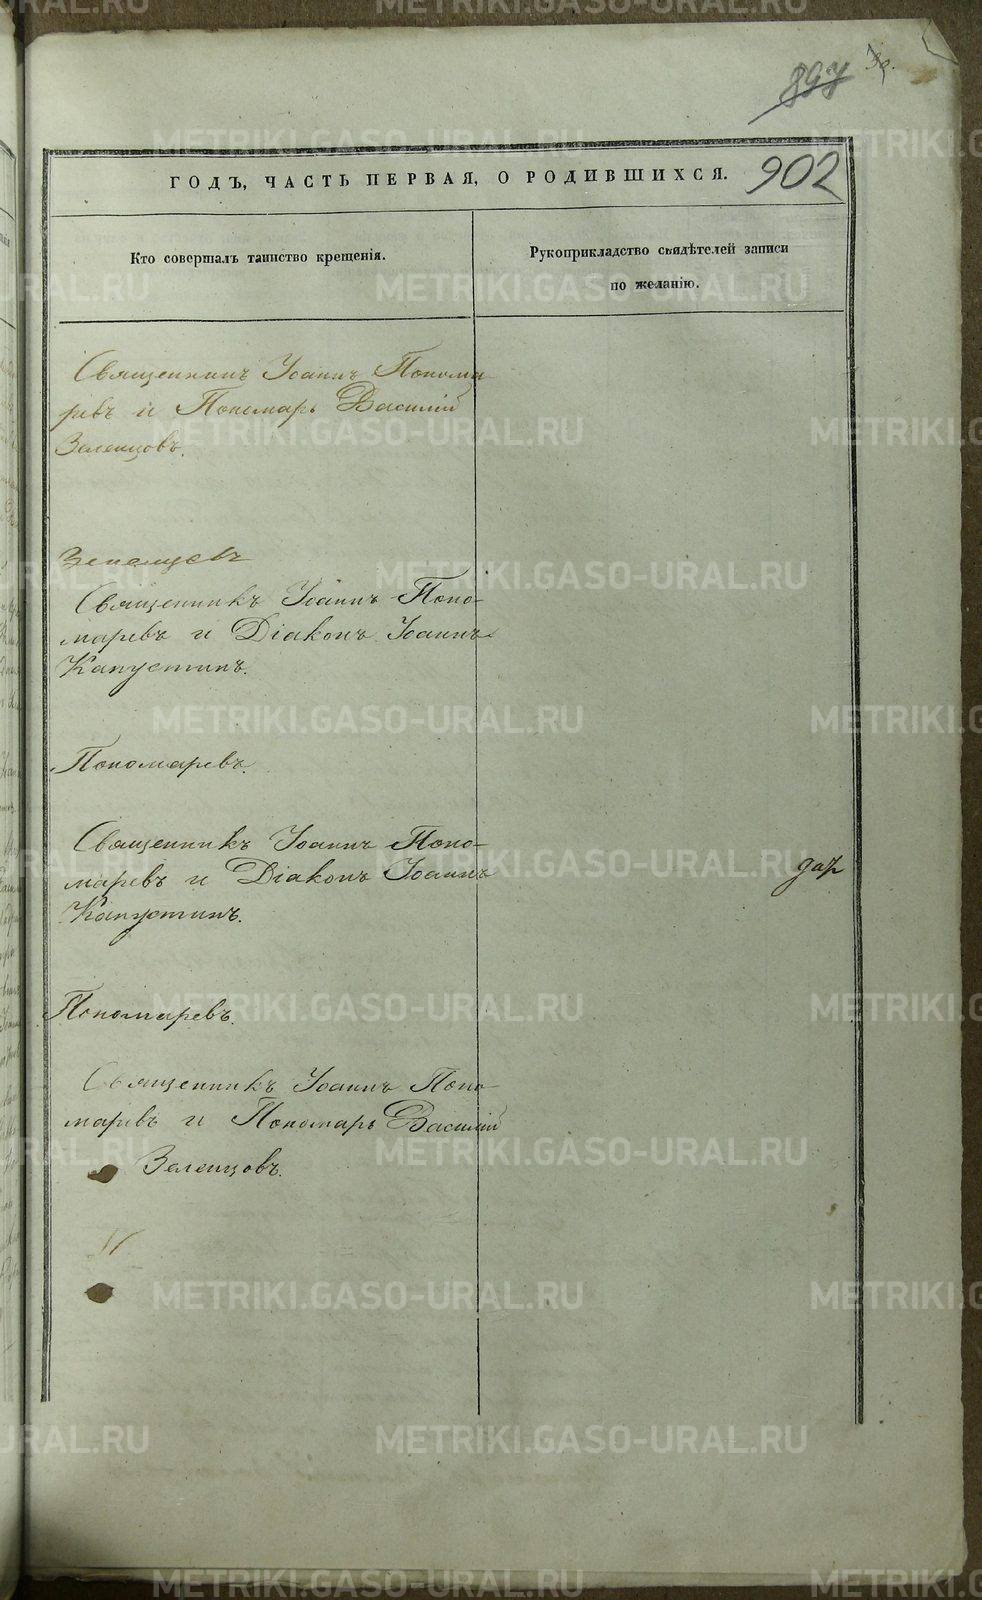 897 39.
902
ГОДЪ, ЧАСТЬ ПЕРВАЯ, О РОДИВШИХСЯ.
Кто совершалъ таинство крещенія.
Рукоприкладство свидѣтелей записи
по желанію.
Священникъ Іоаннъ Понома
ревъ и Пономарь Василій
Зеленцовъ.
Священникъ Іоаннъ Поно-
маревъ и Діаконъ Іоаннъ
Капустинъ.
Пономаревъ.
Священникъ Іоаннъ Поно-
маревъ и Діаконъ Іоаннъ
Капустинъ.
дар
Пономаревъ.
Священникъ Іоаннъ Поно-
маревъ и Пономарь Василій
Зеленцовъ.
METRIKI.GASO-URAL.RU